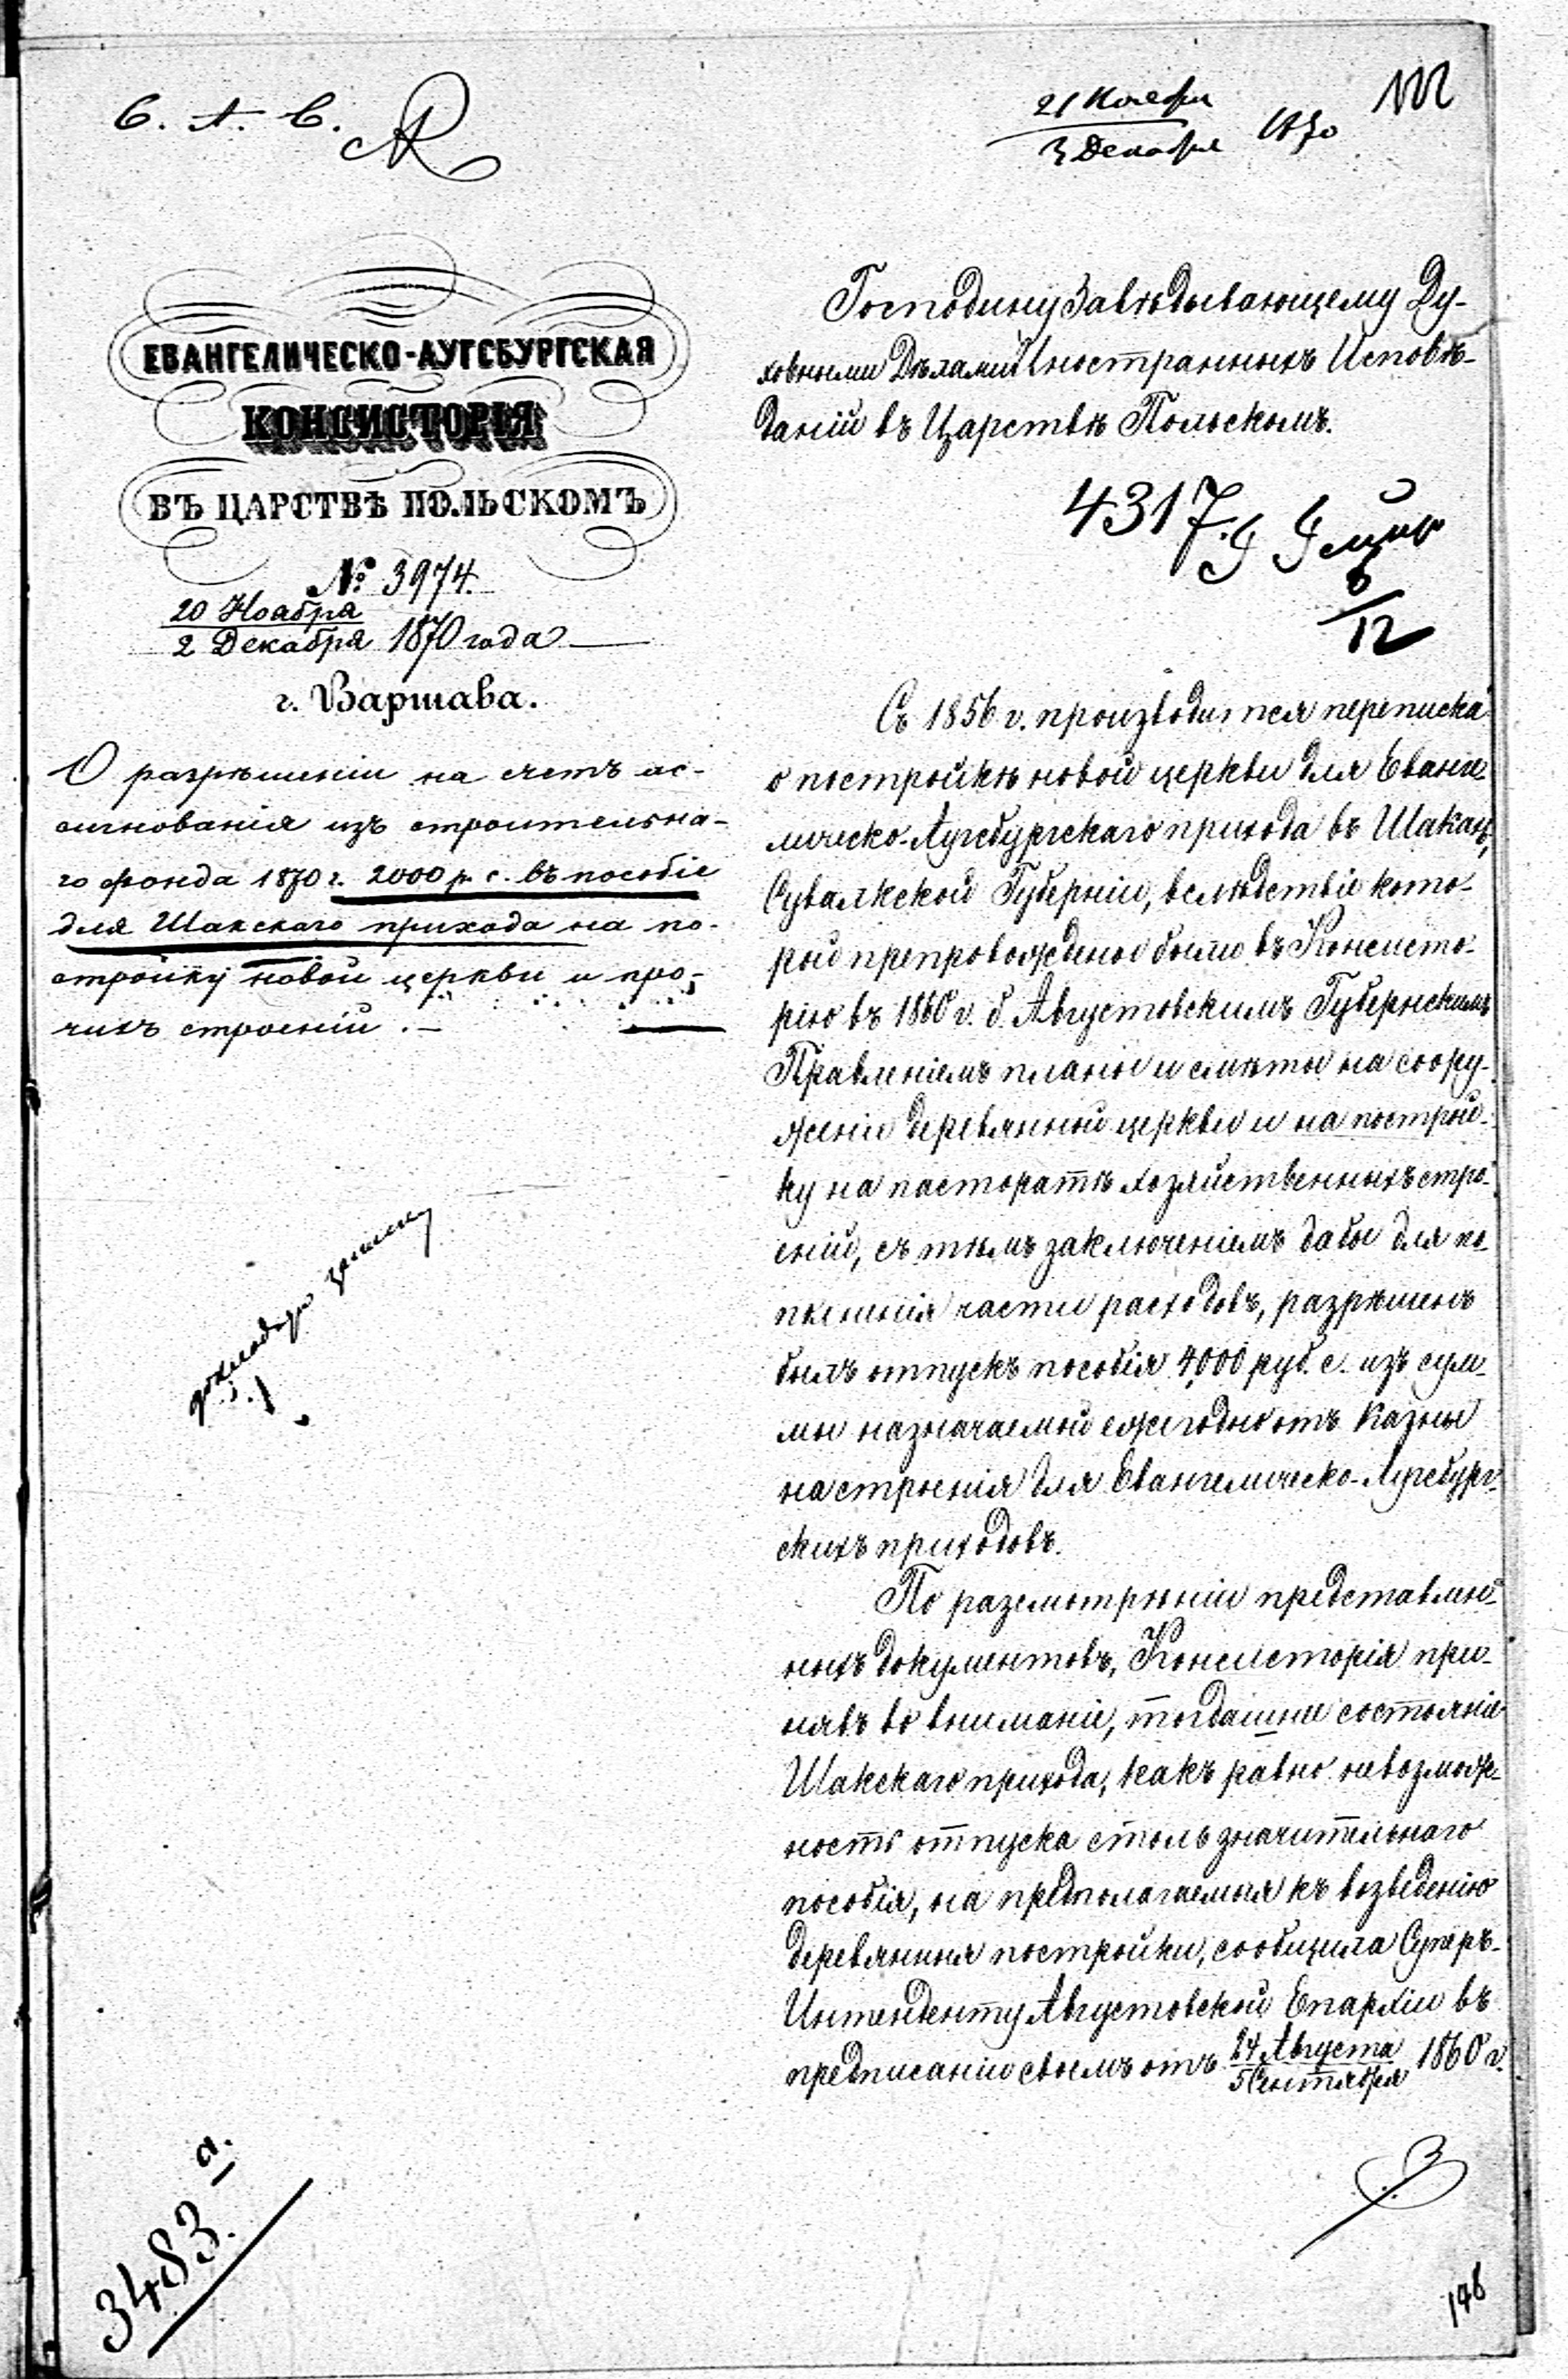 21 Ноября
3 Декабря 1870
ЕВАНГЕЛИЧЕСКО-АУГСБУРГСКАЯ
КОНСИСТОРІЯ
ВЪ ЦАРСТВѢ ПОЛЬСКОМЪ
№ 3974.
20 Ноабря
2 Декабря 1870 года
г. Варшава.
О разрѣшеніи на счетъ ас-
сигнованія изъ строительна-
го фонда 1870 г. 2000 р. с. въ пособіе
для Шакскаго прихода на по-
стройку новой церкви и про-
чихъ строеній.
Господину Завѣдывающему Ду-
ховными Дѣлами Иностранныхъ Исповѣ-
даній въ Царствѣ Польскомъ.
4317
6/12
Съ 1856 г. производится переписка
о постройкѣ новой церкви для Еванге-
лическо-Аугсбургскаго прихода въ Шакахъ,
Сувалкской Губерніи, вслѣдствіе кото-
рой препровождены были въ Консисто-
рію въ 1860 г. б. Августовскимъ Губернскимъ
Правленіемъ планы и смѣты на соору-
женіе деревянной церкви и на построй-
ку на пасторатѣ хозяйственныхъ стро-
еній, съ тѣмъ заключеніемъ дабы для по-
полненія части расходовъ, разрѣшенъ
былъ отпускъ пособія 4000 руб. с. изъ сум-
мы назначаемой ежегодно отъ Казны
на строенія для Евангелическо-Аугсбург-
скихъ приходовъ.
По разсмотрѣніи представлен-
ныхъ документовъ, Консисторія при-
нявъ во вниманіе, тогдашнее состояніе
Шакскаго прихода, какъ равно невозмож-
ность отпуска столь значительнаго
пособія, на предполагаемыя къ возведенію
деревянныя постройки, сообщила Суперъ-
Интенденту Августовской Епархіи въ
предписаніи своемъ отъ 24 Августа
5 Сентября 1860 г.
3483 а.
148